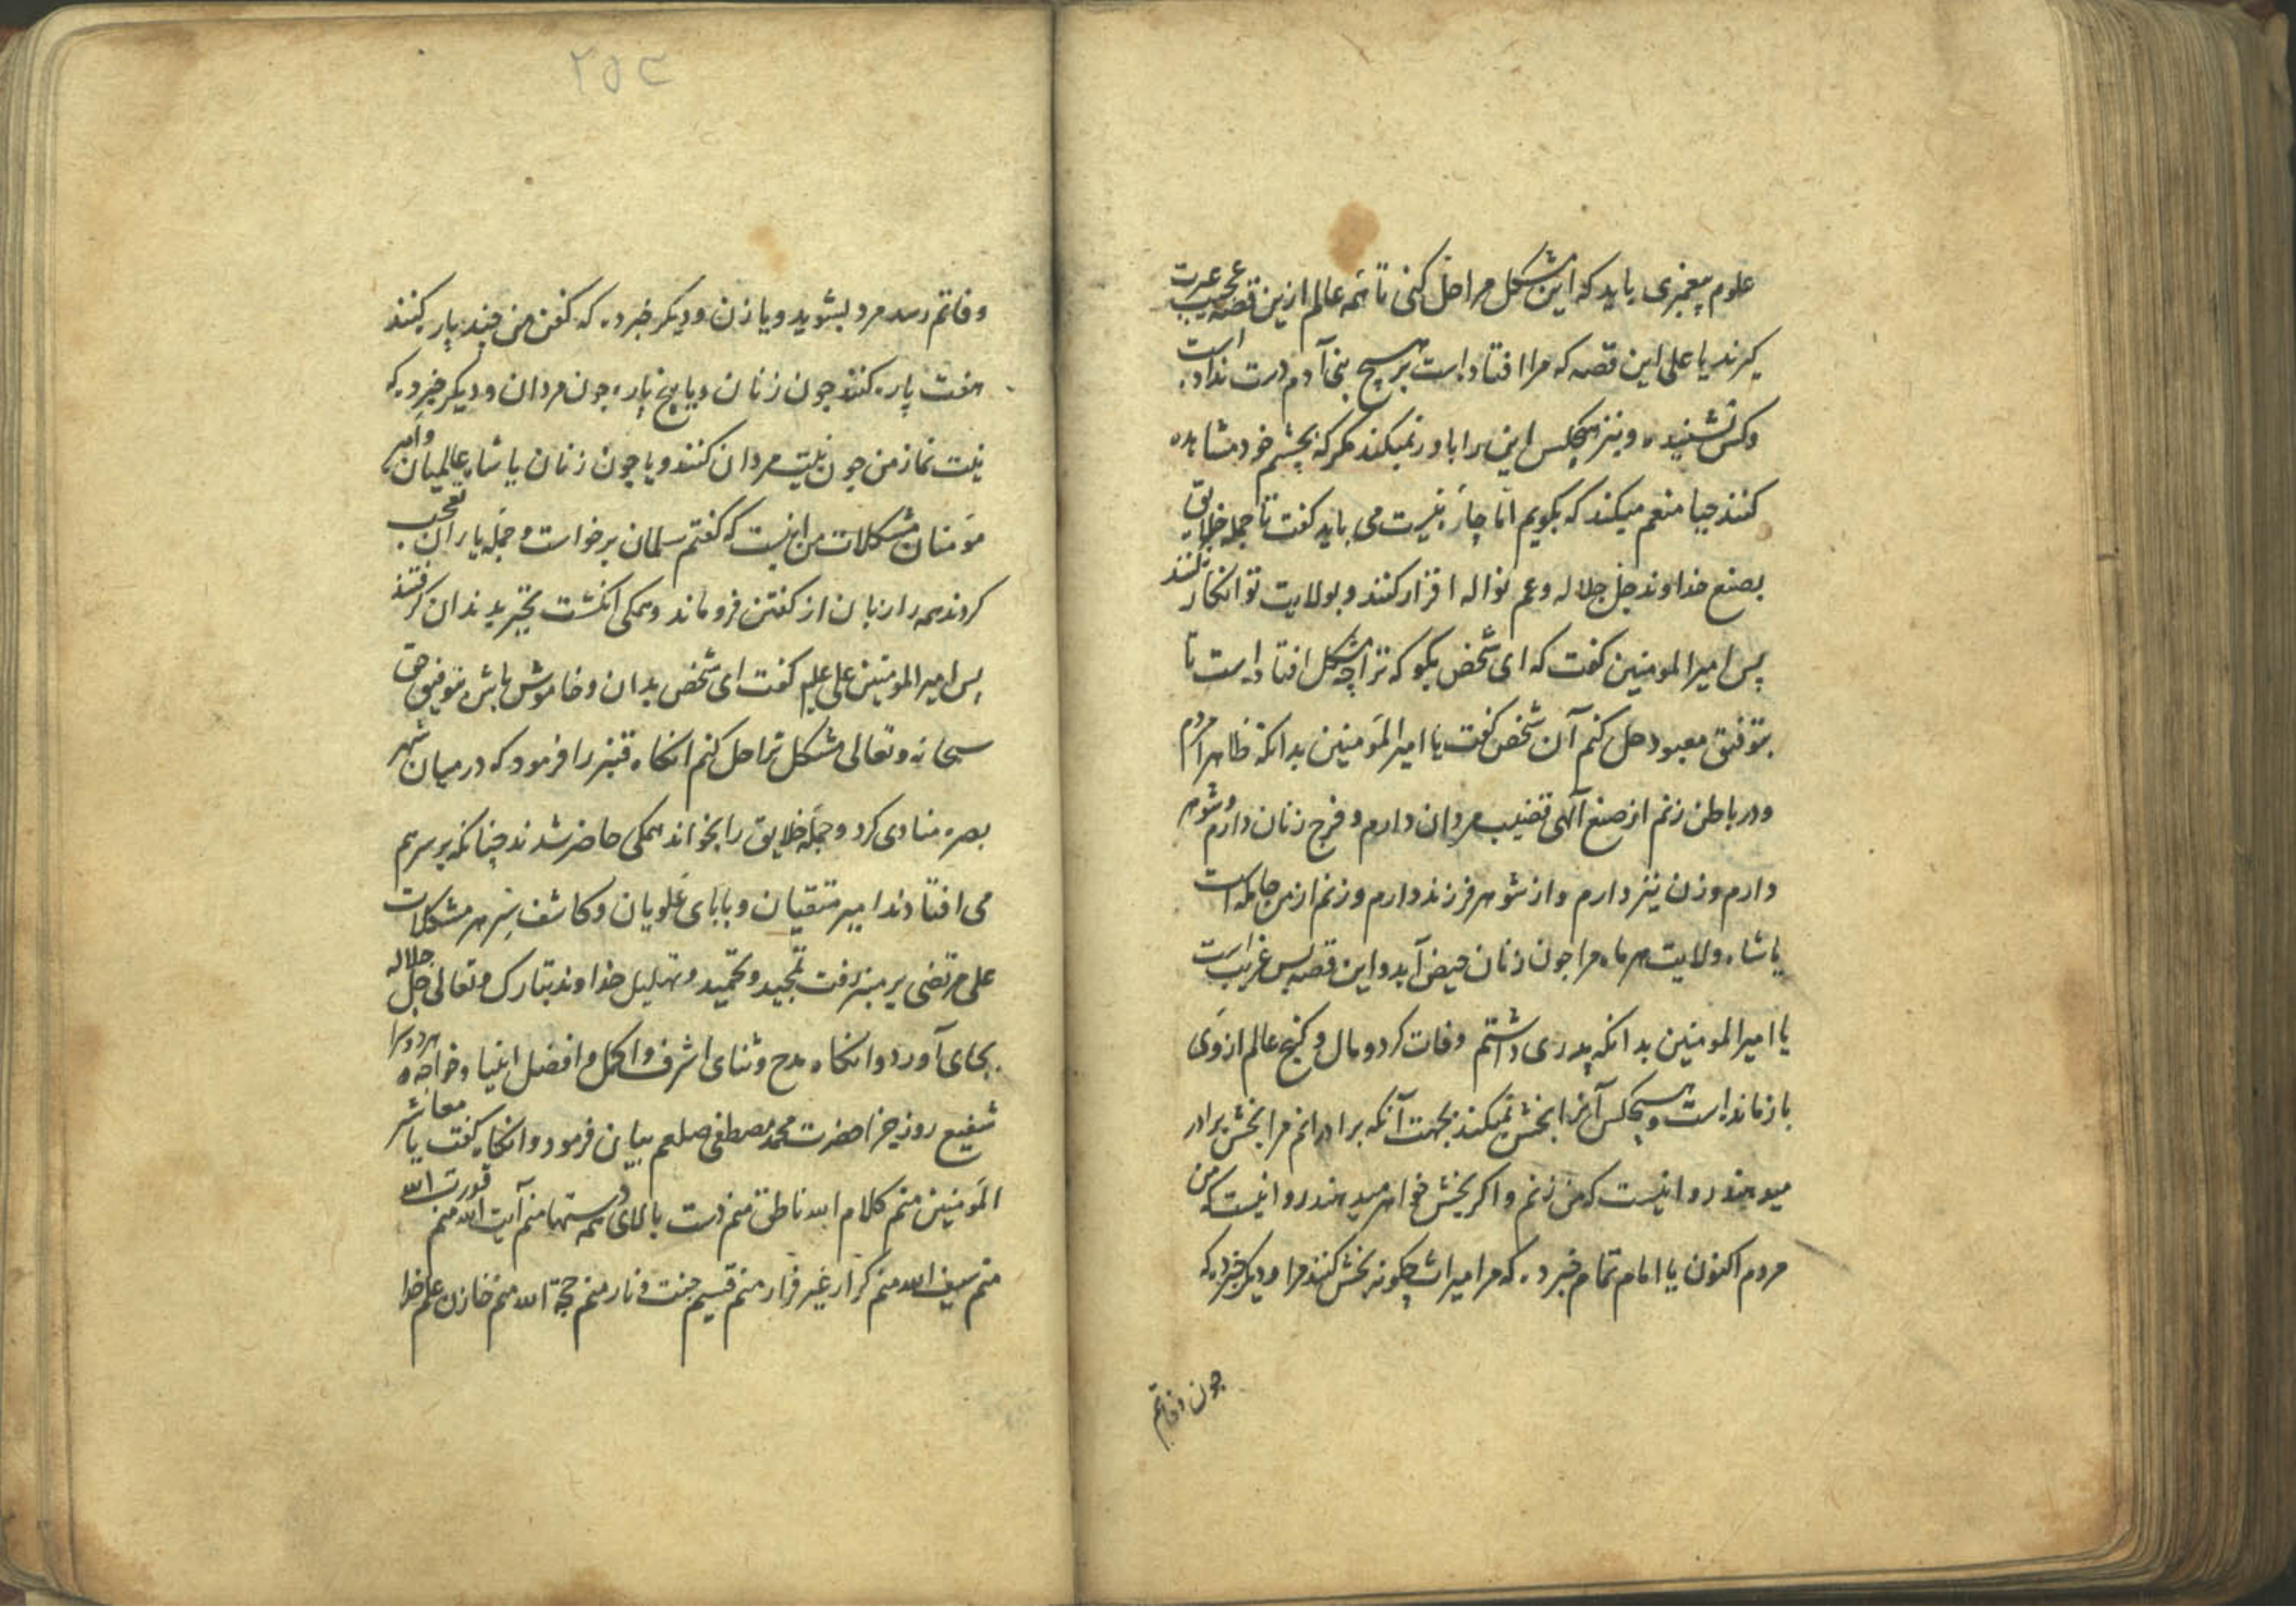 علوم پیغمبری باید که این مشکل مرا حل کنی تا همه عالم ازین قصه عجیب عبرت
کیرند یا علی این قصه که مرا افتاده است بر هیچ بنی آدم درست نداده است
و کس نشنیده و نیز هیچکس این را باور نمیکند مکر که بچشم خود مشاهده
کنند حیا منعم میکند که بکویم اما چاره نیست می باید کفت تا جمله خلایق
بصنع خداوند جل جلاله و عم نواله اقرار کنند و بولایت تو انکار نکنند
پس امیر المومنین کفت که ای شخص بکو که ترا چه مشکل افتاده است تا
بتوفیق معبود حل کنم آن شخص کفت یا امیر المومنین بدانکه ظاهرا مردم
و در باطن زنم از صنع آلهی قضیب مردان دارم و فرج زنان دارم و شوهر
دارم و زن نیز دارم و از شوهر فرزند دارم و زنم از من حامله است
یا شاه ولایت هر ماه مرا جون زنان حیض آید و این قصه بس غریب است
یا امیر المومنین بدانکه پدری داشتم وفات کرد و مال و کنج عالم از وی
بازمانده است و هیچکس آنرا بخش نمیکند بجهت آنکه برادرانم مرا بخش برادر
میدهند روا نیست که من زنم و اکر بخش خواهر میدهند روا نیست که من
مردم اکنون یا امام تمام خبر ده که مرا میراث چکونه بخش کنند مرا و دیکر خبر ده که
جون وفاتم
۲۵۲
وفاتم رسد مرد بشوید و یا زن و دیکر خبر ده که کفن من چند پاره کنند
هفت پاره کنند جون زنان و یا پنج پاره جون مردان و دیکر خبر ده که
نیت نماز من جون نیت مردان کنند و یا چون زنان یا شاه عالمیان و امیر
مومنان مشکلات من اینست که کفتم سلمان برخواست و جمله یاران تعجب
کردند همه را زبان از کفتن فروماند و همکی انکشت تحیر بدندان کرفتند
پس امیر المومنین علی علیه کفت ای شخص بدان و خاموش باش بتوفیق حق
سبحانه و تعالی مشکل ترا حل کنم انکاه قنبر را فرمود که در میان شهر
بصره منادی کرد و جمله خلایق را بخواند همکی حاضر شدند چنانکه بر سر هم
می افتادند امیر متقیان و بابای علویان و کاشف سر هر مشکلات
علی مرتضی بر منبر رفت تمجید و تحمید و تهلیل خداوند تبارک و تعالی جل جلاله
بجای آورد و انکاه مدح و ثنای اشرف و اکمل و افضل انبیا و خواجه هر دو سرا
شفیع روز جزا حضرت محمد مصطفی صلعم بیان فرمود و انکاه کفت یا معاشر
المومنین منم کلام الله ناطق منم دست بالای همه دستها منم آیت الله منم قدرت الله
منم سیف الله منم کرار غیر فرار منم قسیم جنت و نار منم حجة الله منم خازن علم خدا